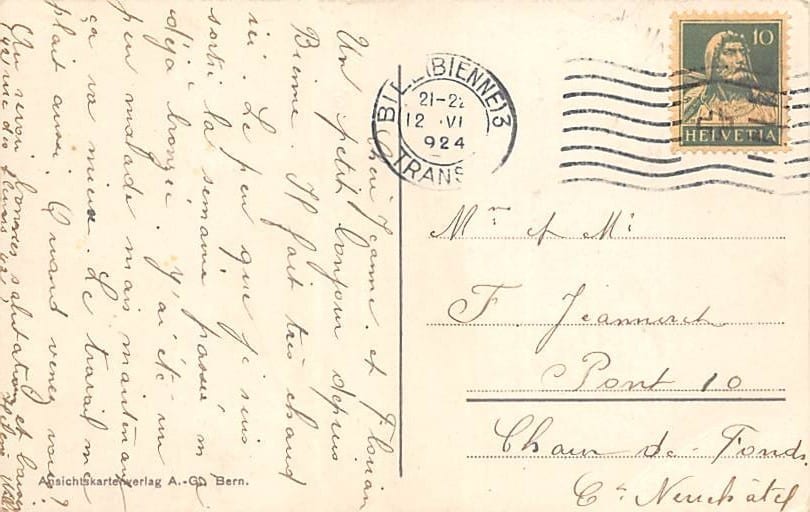 Chers Jeanne. et Florian
Un petit bonjour depuis
Bienne. Il fait très chaud
ici. Le peu que je suis
sortie la semaine passée m'a
déjà bronzée. J'ai été un
peu malade mais maintenant
ça va mieux. Le travail me
plaît aussi. Quand venez vous?
Au revoir bonnes salutations et baisers
BIEL (BIENNE) 3
21-22
12 VI
924
TRANS
10
HELVETIA
Mr et Me
F. Jeanneret
Pont 10
Chaux-de-Fonds
Ct Neuchâtel
Ansichtskartenverlag A.-G. Bern.